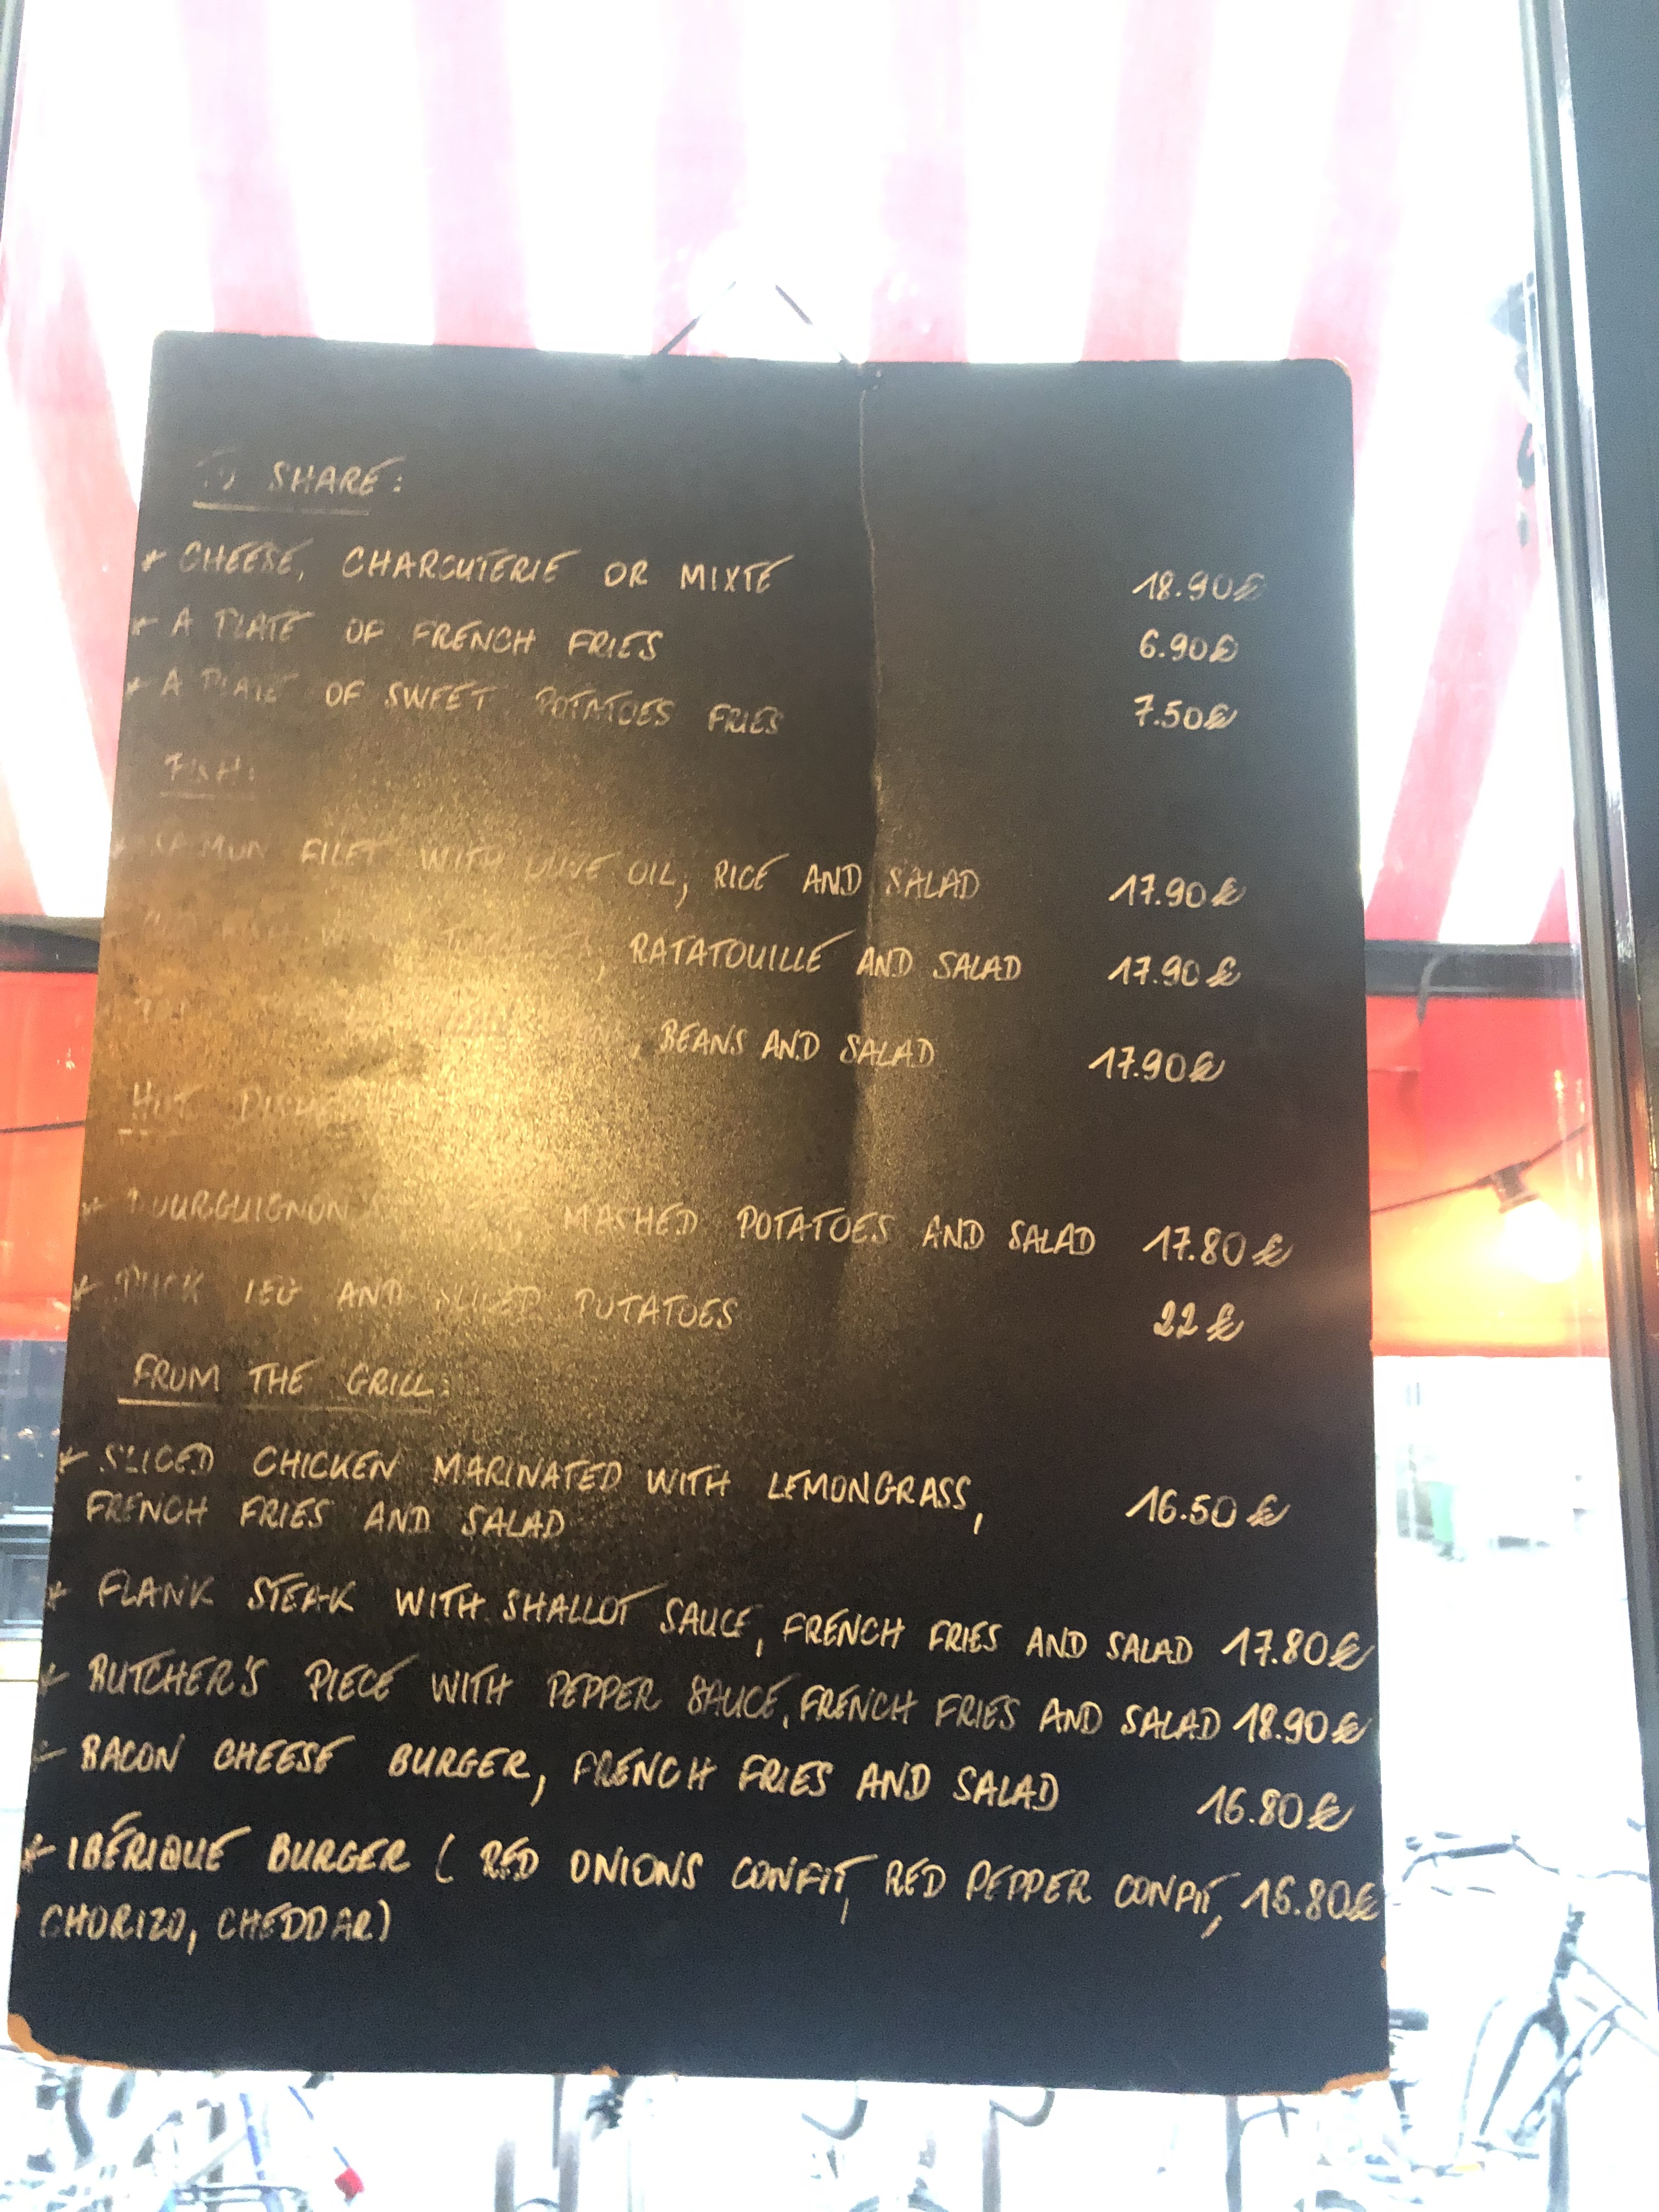 TO SHARE:
* CHEESE, CHARCUTERIE OR MIXTE 18.90€
* A PLATE OF FRENCH FRIES 6.90€
* A PLATE OF SWEET POTATOES FRIES 7.50€
FISH:
FILET WITH OLIVE OIL, RICE AND SALAD 17.90€
, RATATOUILLE AND SALAD 17.90€
, BEANS AND SALAD 17.90€
HOT
* BOURGUIGNON MASHED POTATOES AND SALAD 17.80€
* DUCK LEG AND SLICED POTATOES 22€
FROM THE GRILL:
* SLICED CHICKEN MARINATED WITH LEMONGRASS, 16.50€
FRENCH FRIES AND SALAD
* FLANK STEAK WITH SHALLOT SAUCE, FRENCH FRIES AND SALAD 17.80€
* BUTCHER'S PIECE WITH PEPPER SAUCE, FRENCH FRIES AND SALAD 18.90€
* BACON CHEESE BURGER, FRENCH FRIES AND SALAD 16.80€
* IBÉRIQUE BURGER ( RED ONIONS CONFIT, RED PEPPER CONFIT, 16.80€
CHORIZO, CHEDDAR)